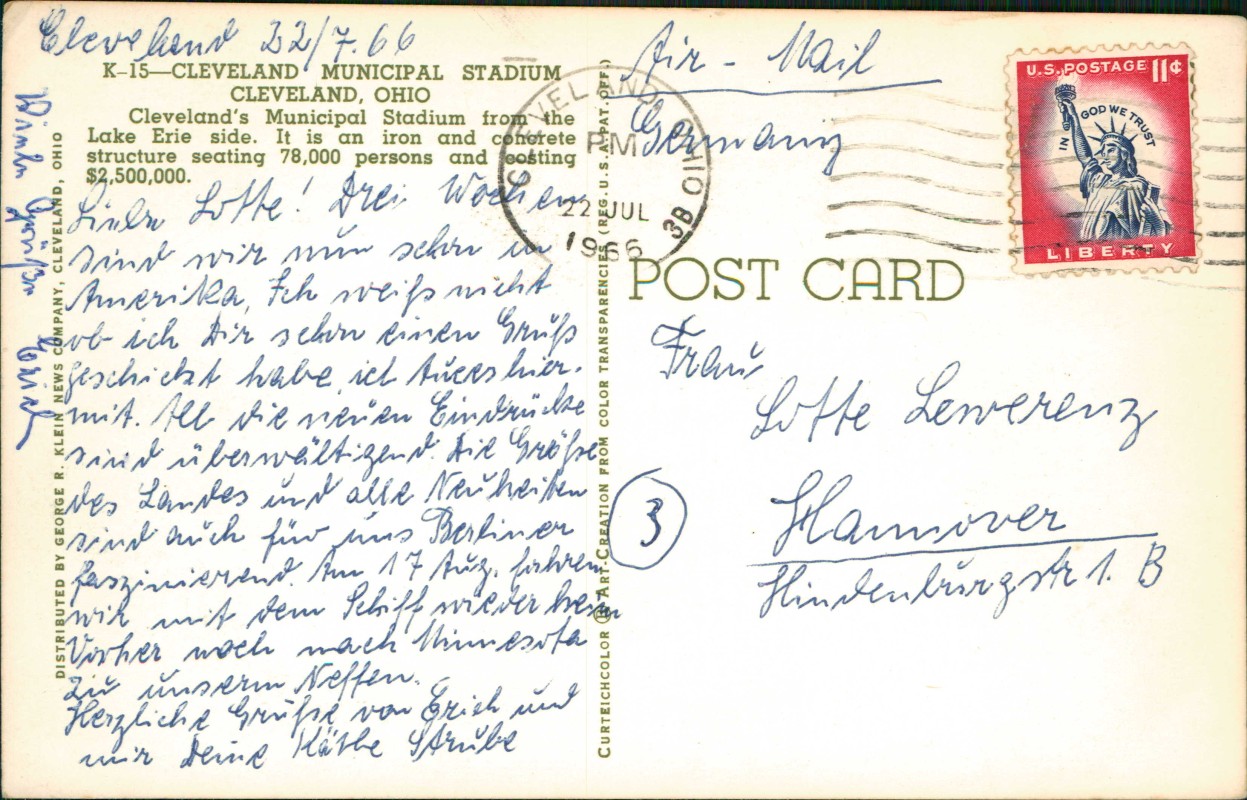 Cleveland 22/7.66
K-15—CLEVELAND MUNICIPAL STADIUM
CLEVELAND, OHIO
Cleveland's Municipal Stadium from the
Lake Erie side. It is an iron and concrete
structure seating 78,000 persons and costing
$2,500,000.
Liebe Lotte! Drei Wochen
sind wir nun schon in
Amerika, Ich weiß nicht
ob ich Dir schon einen Gruß
geschickt habe, ich hier-
mit. All die neuen Eindrücke
sind überwältigend. Die Größe
des Landes und alle Neuheiten
sind auch für uns Berliner
faszinierend. Am 17 Aug. fahren
wir mit dem Schiff wieder heim
Vorher noch nach Minnesota
zu unserm Neffen.
Herzliche Grüße von Erich und
mir Deine Käthe Strube
Grüße Erich
DISTRIBUTED BY GEORGE R. KLEIN NEWS COMPANY, CLEVELAND, OHIO
CURTEICHCOLOR ® ART-CREATION FROM COLOR TRANSPARENCIES (REG. U.S.A. PAT. OFF.)
CLEVELAND, OHIO
PM
22 JUL
1966
3B
Air-Mail
Germany
U.S. POSTAGE 11¢
IN GOD WE TRUST
LIBERTY
POST CARD
Frau
Lotte Lewerenz
3
Hannover
Hindenburgstr 1. B